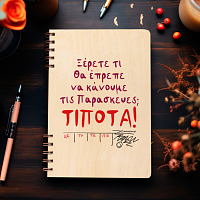 Ξέρετε τι
θα έπρεπε
να κάνουμε
τις Παρασκευές;
ΤΙΠΟΤΑ!